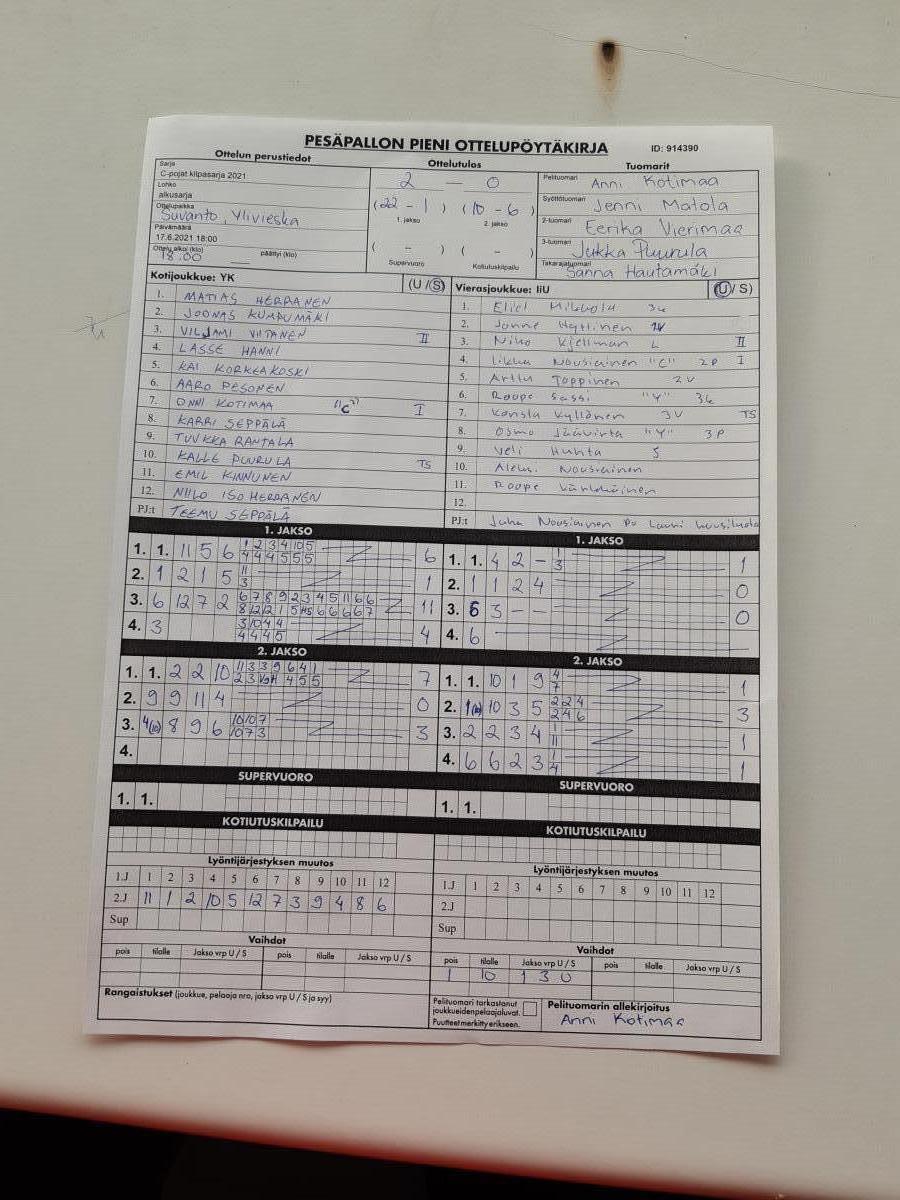 PESÄPALLON PIENI OTTELUPÖYTÄKIRJA
ID: 914390
Ottelun perustiedot
Ottelutulos
Tuomarit
Sarja
C-pojat kilpasarja 2021
Lohko
alkusarja
Ottelupaikka
Suvanto, Ylivieska
Päivämäärä
17.6.2021 18:00
Ottelu alkoi (klo) päättyi (klo)
18.00
2 — 0
(22 - 1) (10 - 6)
1. jakso 2. jakso
( - ) ( - )
Supervuoro Kotiutuskilpailu
Pelituomari Anni Kotimaa
Syöttötuomari Jenni Matola
2-tuomari Eerika Vierimaa
3-tuomari Jukka Puurula
Takarajatuomari Sanna Hautamäki
Kotijoukkue: YK (U / S)
1. MATIAS HERRANEN
2. JOONAS KUMPUMÄKI
3. VILJAMI VIITANEN II
4. LASSE HANNI
5. KAI KORKEAKOSKI
6. AARO PESONEN
7. ONNI KOTIMAA "C" I
8. KARRI SEPPÄLÄ
9. TUUKKA RANTALA
10. KALLE PUURULA TS
11. EMIL KINNUNEN
12. NIILO ISOHERRANEN
PJ:t TEEMU SEPPÄLÄ
Vierasjoukkue: IiU (U / S)
1. Eliel Mikkola 3k
2. Janne Hyttinen 1V
3. Niko Kjellman L II
4. Iikka Nousiainen "C" 2P I
5. Arttu Toppinen 2V
6. Roope Sassi "Y" 3k
7. Konsta Kyllönen 3V TS
8. Osmo Jäävirta "Y" 3P
9. Veli Huhta S
10. Aleksi Nousiainen
11. Roope Kärkkäinen
12.
PJ:t Juha Nousiainen PV Lauri
1. JAKSO
1. 1. 11 5 6 1 2 3 4 10 5 6
4 4 4 5 5 5
2. 1 2 1 5 11 1
3
3. 6 12 7 2 6 7 8 9 2 3 4 5 11 6 6 11
4. 3 3 10 4 4 4
4 4 4 5
1. JAKSO
1. 1. 4 2 - 1 1
3
2. 1 1 2 4 0
3. 5 3 - - 0
4. 6
2. JAKSO
1. 1. 2 2 10 11 3 3 9 6 4 1 7
2. 9 9 11 4 0
3. 4(10) 8 9 6 10 10 7 3
10 7 3
4.
2. JAKSO
1. 1. 10 1 9 4 1
7
2. 10 3 5 2 2 4 3
2 4 6
3. 2 2 3 4 1 1
11
4. 6 6 2 3 1 1
4
SUPERVUORO
1. 1.
SUPERVUORO
1. 1.
KOTIUTUSKILPAILU
KOTIUTUSKILPAILU
Lyöntijärjestyksen muutos
1.J 1 2 3 4 5 6 7 8 9 10 11 12
2.J 11 1 2 10 5 12 7 3 9 4 8 6
Sup
Lyöntijärjestyksen muutos
1.J 1 2 3 4 5 6 7 8 9 10 11 12
2.J
Sup
Vaihdot
pois tilalle Jakso vrp U / S pois tilalle Jakso vrp U / S
Vaihdot
pois tilalle Jakso vrp U / S pois tilalle Jakso vrp U / S
1 10 1 3 U
Rangaistukset (joukkue, pelaaja nro, jakso vrp U / S ja syy)
Pelituomari tarkastanut
joukkueiden pelaajaluvat.
Puutteet merkitty erikseen.
Pelituomarin allekirjoitus
Anni Kotimaa